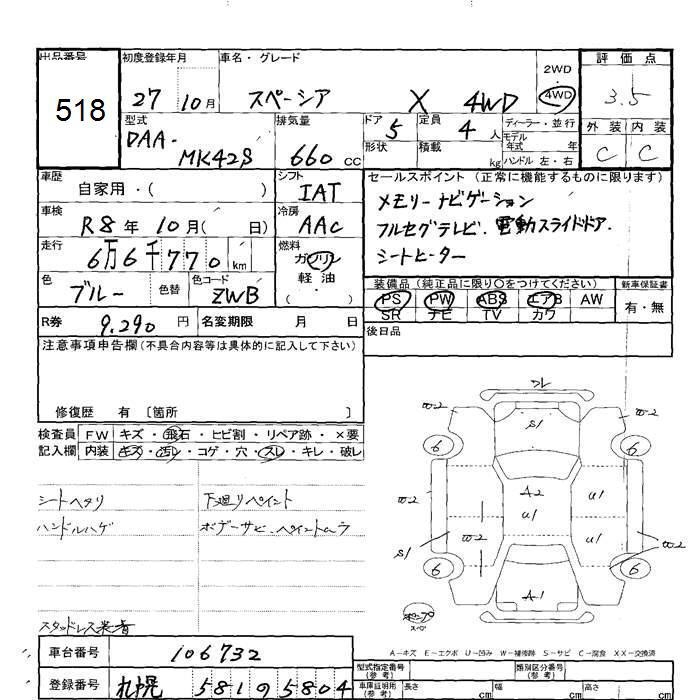 出品番号 初度登録年月 車名・グレード 2WD 評価点
518 27 10月 スペーシア X 4WD 4WD 3.5
型式 排気量 ドア 定員 ディーラー・並行 外装 内装
DAA- MK42S 660 cc 5 4 人 モデル 年式 年 C C
形状 積載 kg ハンドル 左・右
車歴 自家用・( ) シフト IAT セールスポイント (正常に機能するものに限ります)
メモリーナビゲーション
車検 R8年 10月( 日) 冷房 AAC フルセグテレビ. 電動スライドドア.
走行 6万6千770 km 燃料 ガソリン 軽油 ・( ) シートヒーター
色 ブルー 色替 色コード ZWB 装備品 (純正品に限り○をつけてください) 新車保証書
PS PW ABS エアB AW 有・無
SR ナビ TV カワ
R券 9,290 円 名変期限 月 日 後日品
注意事項申告欄 (不具合内容等は具体的に記入して下さい)
修復歴 有 〔箇所 〕
検査員 FW キズ・飛石・ヒビ割・リペア跡・×要
記入欄 内装 キズ・汚レ・コゲ・穴・スレ・キレ・破レ
シートヘタリ 下廻りペイント
ハンドルハゲ ボデーサビ.ペイントムラ
スタッドレス装着
W-2 W-2
S1
6 6
A2 U1
W-2 U1
S1 W-2 U1 W-2
6 6
A1
A-キズ E-エクボ U-凹み W-補修跡 S-サビ C-腐食 XX-交換済
車台番号 106732
型式指定番号 (参考) 類別区分番号 (参考)
登録番号 札幌 581 の 5804
車庫証明用 (参考) 長さ cm 幅 cm 高さ cm